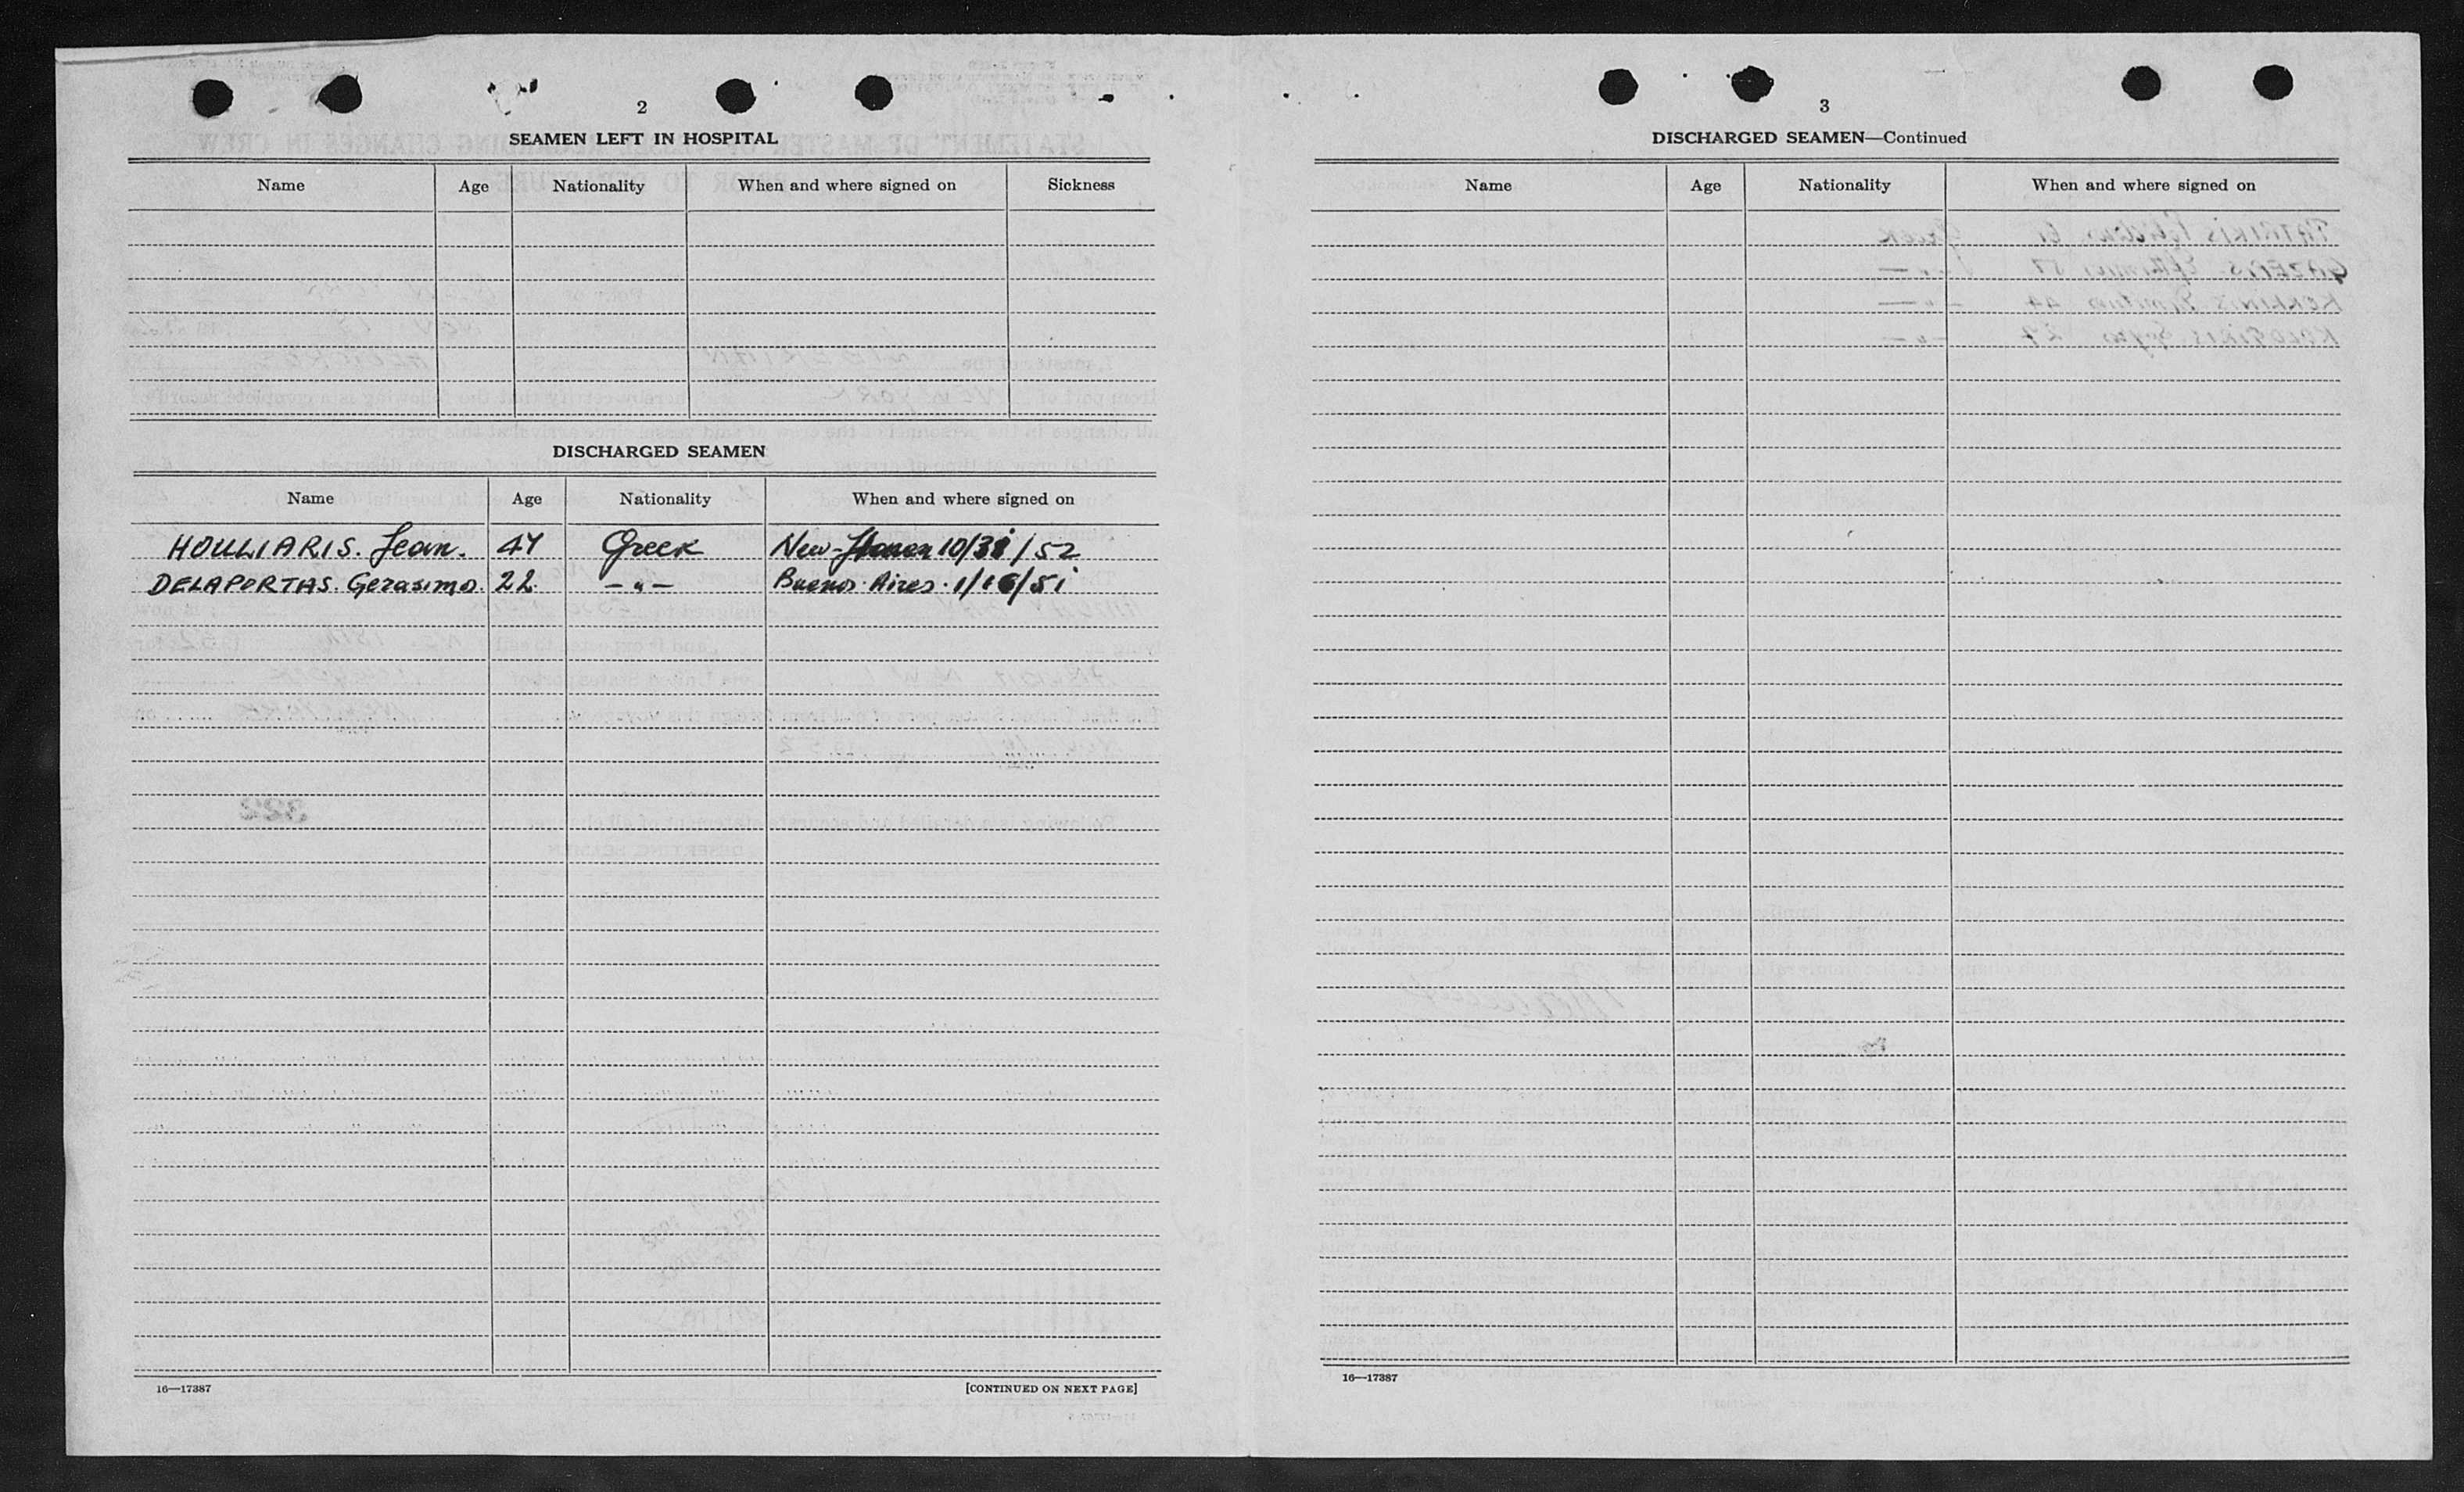 2
SEAMEN LEFT IN HOSPITAL
Name Age Nationality When and where signed on Sickness
DISCHARGED SEAMEN
Name Age Nationality When and where signed on
HOULIARIS. Jean. 47 Greek New-Haven 10/31/52
DELAPORTAS. Gerasimo. 22 —"— Buenos Aires. 1/16/51
16—17387 [CONTINUED ON NEXT PAGE]
3
DISCHARGED SEAMEN—Continued
Name Age Nationality When and where signed on
16—17387